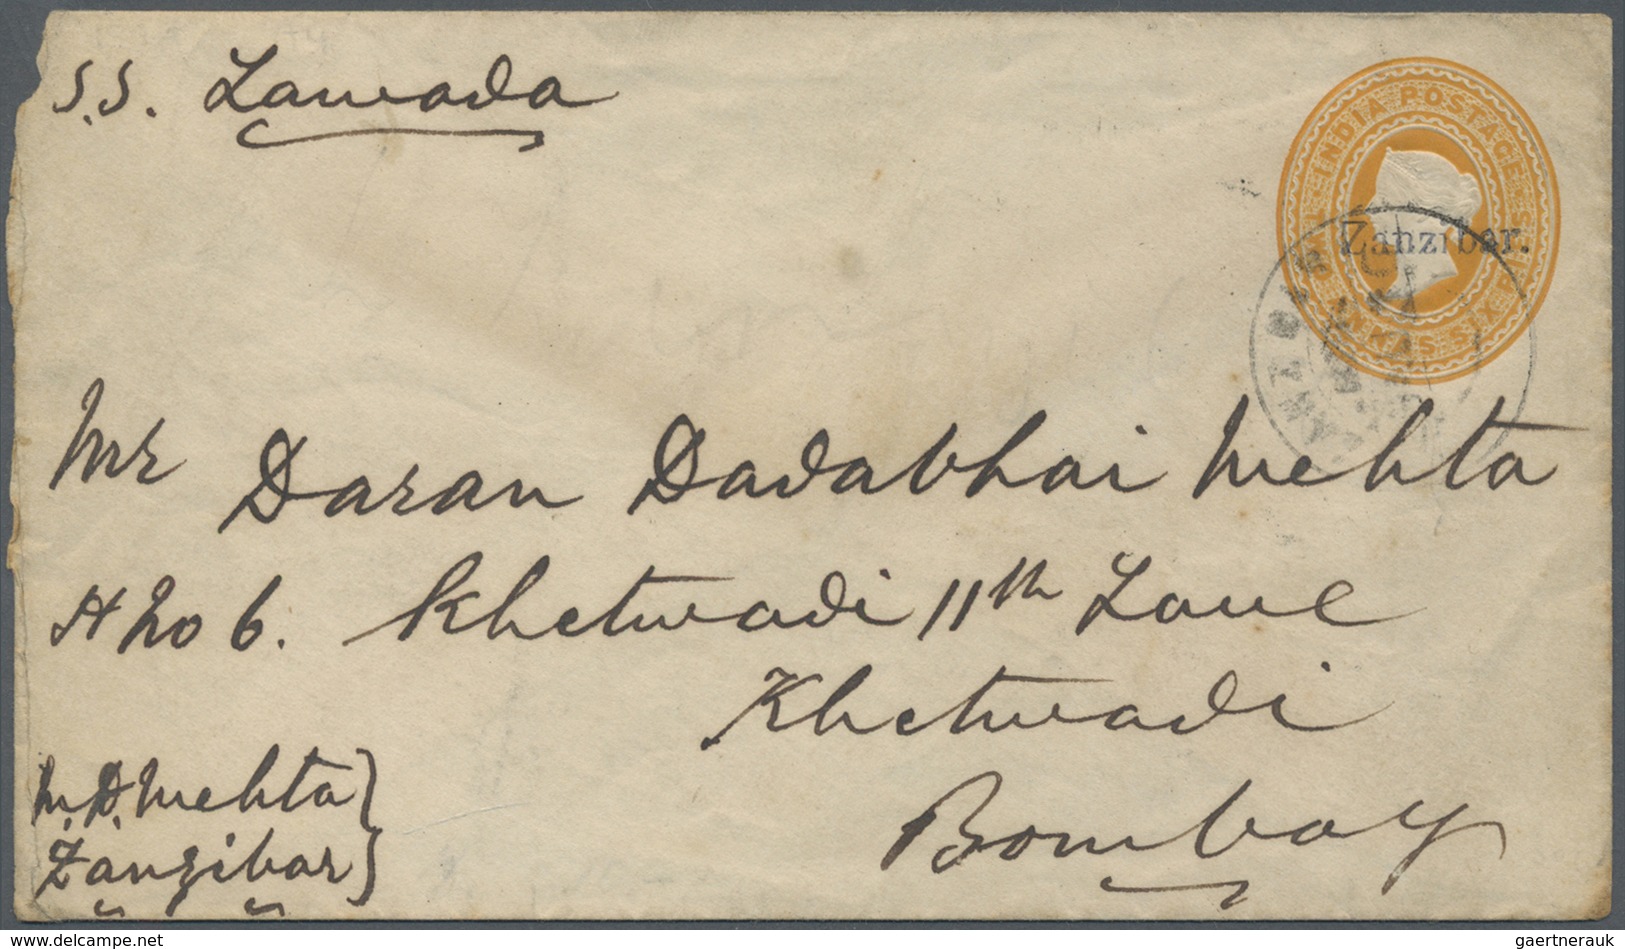 S.S. Lawada
INDIA POSTAGE
TWO ANNAS SIX PIES
Zanzibar.
ZANZIBAR
Mr Daran Dadabhai Mehta
H No 6. Khetwadi 11th Lane
Khetwadi
Bombay
M.D. Mehta
Zanzibar
delcampe.net
gaertnerauk